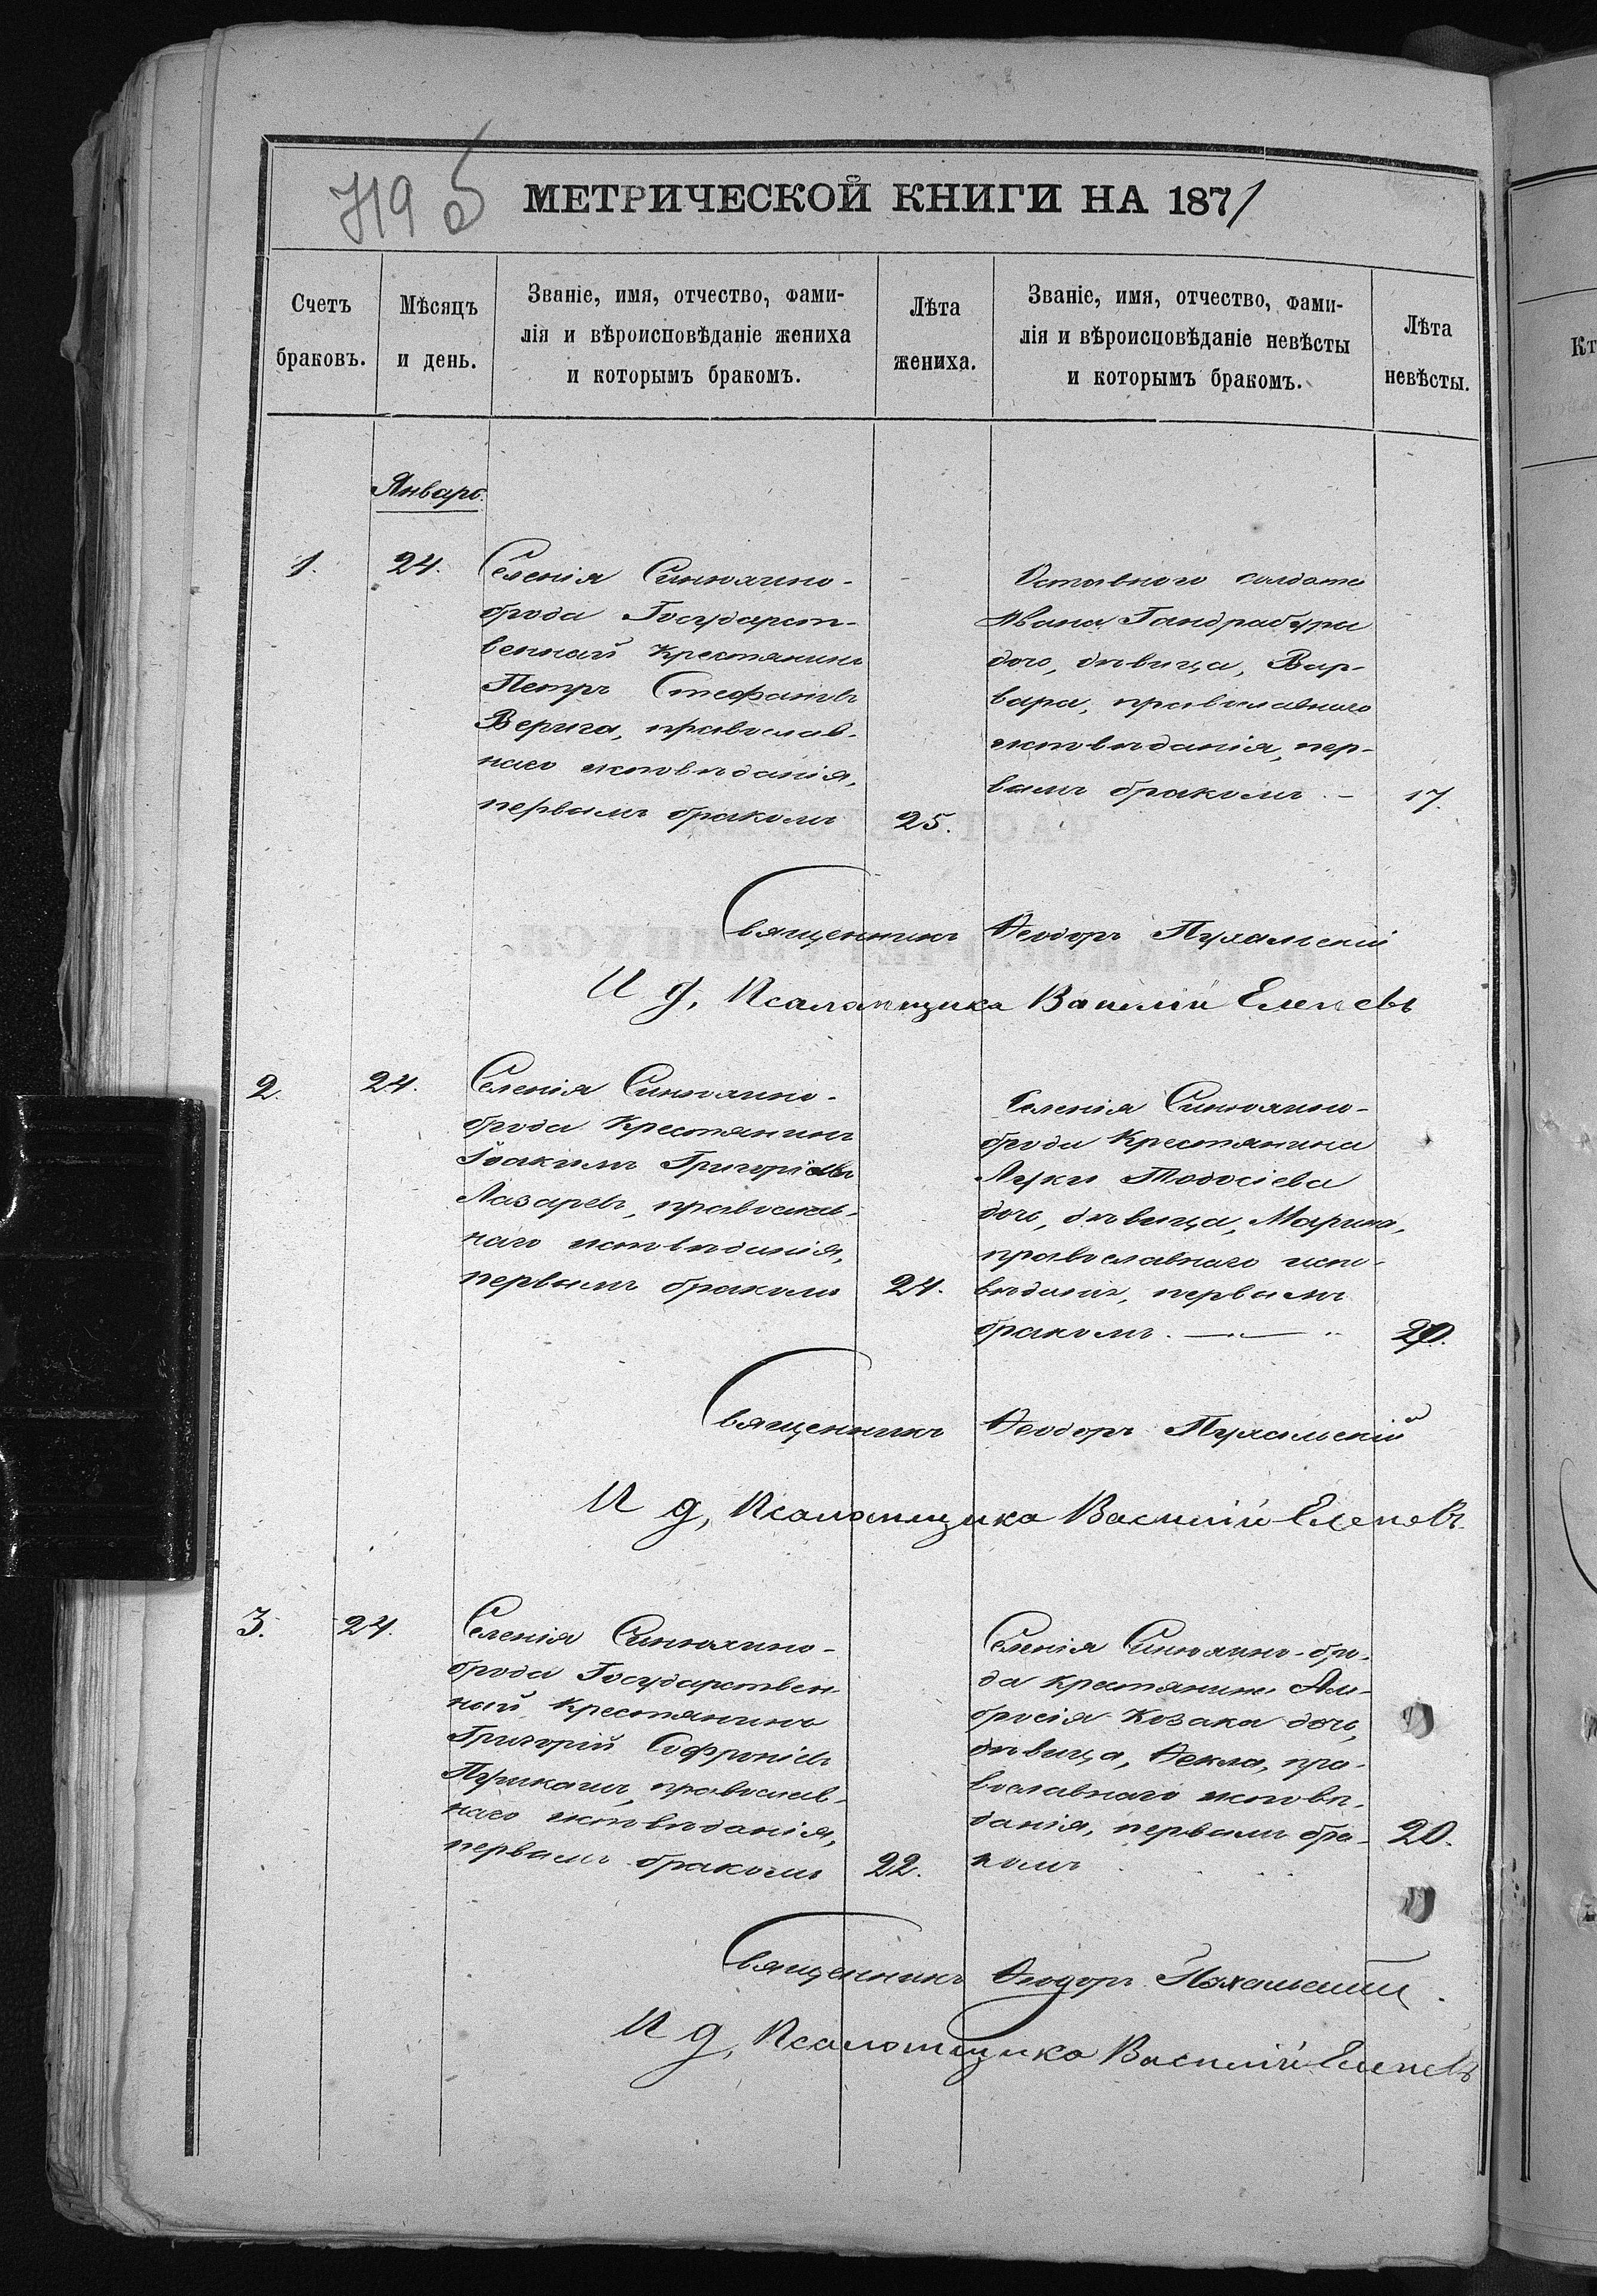 719 б
МЕТРИЧЕСКОЙ КНИГИ НА 1871
Счетъ браковъ.
Мѣсяцъ и день.
Званіе, имя, отчество, фами-
лія и вѣроисповѣданіе жениха
и которымъ бракомъ.
Лѣта жениха.
Званіе, имя, отчество, фами-
лія и вѣроисповѣданіе невѣсты
и которымъ бракомъ.
Лѣта невѣсты.
Январь.
1.
24.
Селенія Синюхино-
брода Государст-
венный Крестянинъ
Петръ Стефановъ
Верига, православ-
наго исповѣданія,
первымъ бракомъ
25.
Отставного солдата
Ивана Гандрабура
дочь, дѣвица, Вар-
вара, православнаго
исповѣданія, пер-
вымъ бракомъ. –
17
Священникъ Ѳеодоръ Пухальскій
И д, Псаломщика Василій Еленевъ
2.
24.
Селенія Синюхино-
брода Крестянинъ
Іоакимъ Григоріевъ
Лазаревъ, православ-
наго исповѣданія,
первымъ бракомъ
24.
Селенія Синюхино-
брода Крестянина
Луки Тодосіева
дочь, дѣвица, Марина,
православнаго испо-
вѣданія, первымъ
бракомъ.
20.
Священникъ Ѳеодоръ Пухальскій
И д, Псаломщика Василій Еленевъ
3.
24.
Селенія Синюхино-
брода Государствен-
ный Крестянинъ
Григорій Софроніевъ
православ-
наго исповѣданія,
первымъ бракомъ
22.
Селенія Синюхино-бро-
да крестянина Ам-
бросія Козака дочь,
дѣвица, Ѳекла, пра-
вославнаго исповѣ-
данія, первымъ бра-
комъ
20.
Священникъ Ѳеодоръ Пухальскій
И д, Псаломщика Василій Еленевъ